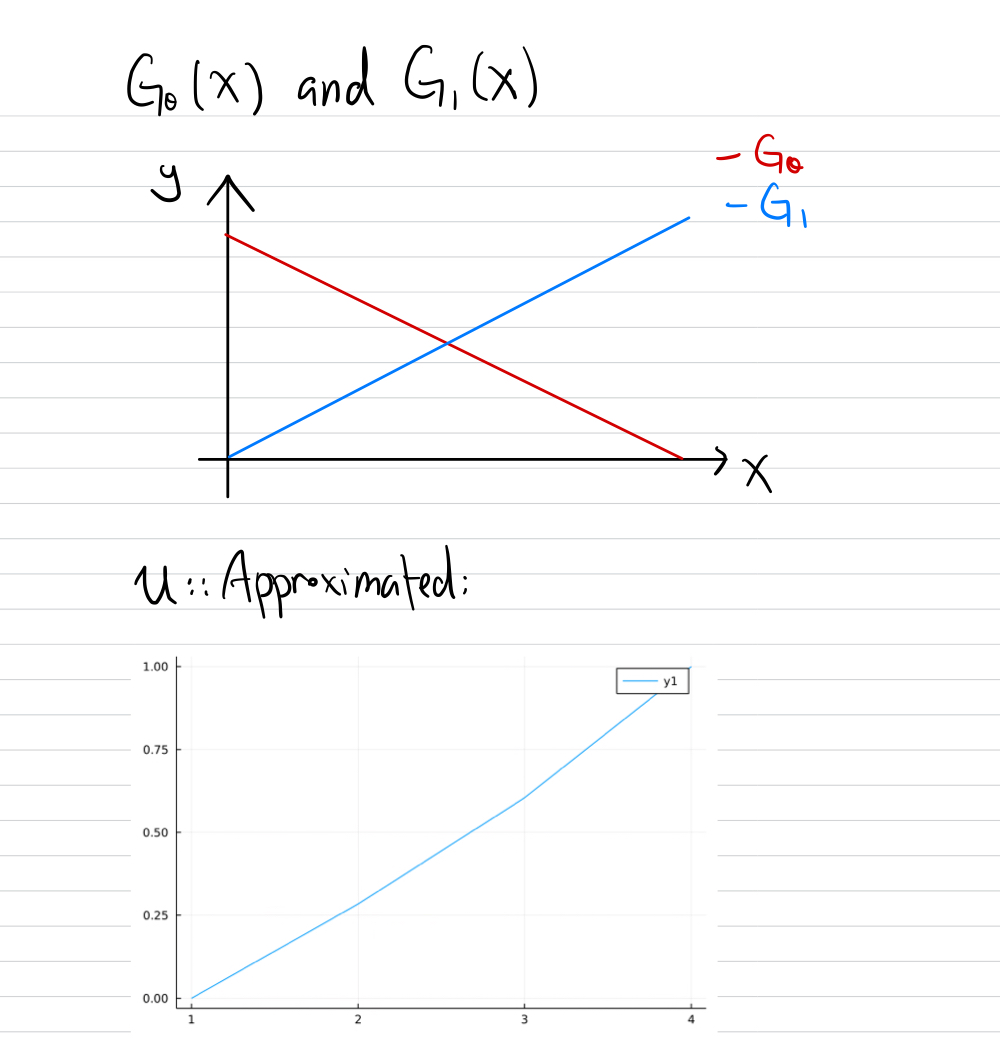 G₀(x) and G₁(x)
y
- G₀
- G₁
x
u :: Approximated:
1.00
y1
0.75
0.50
0.25
0.00
1 2 3 4